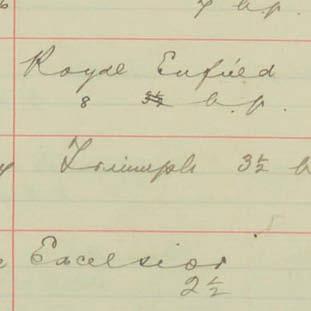 7 h.p.
Royal Enfield
8 3½ h.p.
Triumph 3½ h
Excelsior
2½